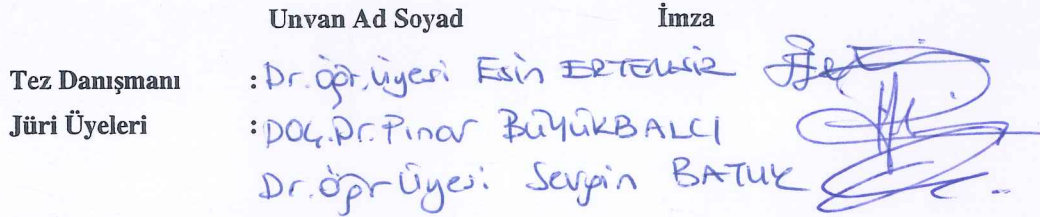 Unvan Ad Soyad İmza
Tez Danışmanı : Dr. öğr. üyesi Esin ERTEMSİR
Jüri Üyeleri : Doç. Dr. Pınar BÜYÜKBALCI
Dr. öğr üyesi Sevgin BATUK